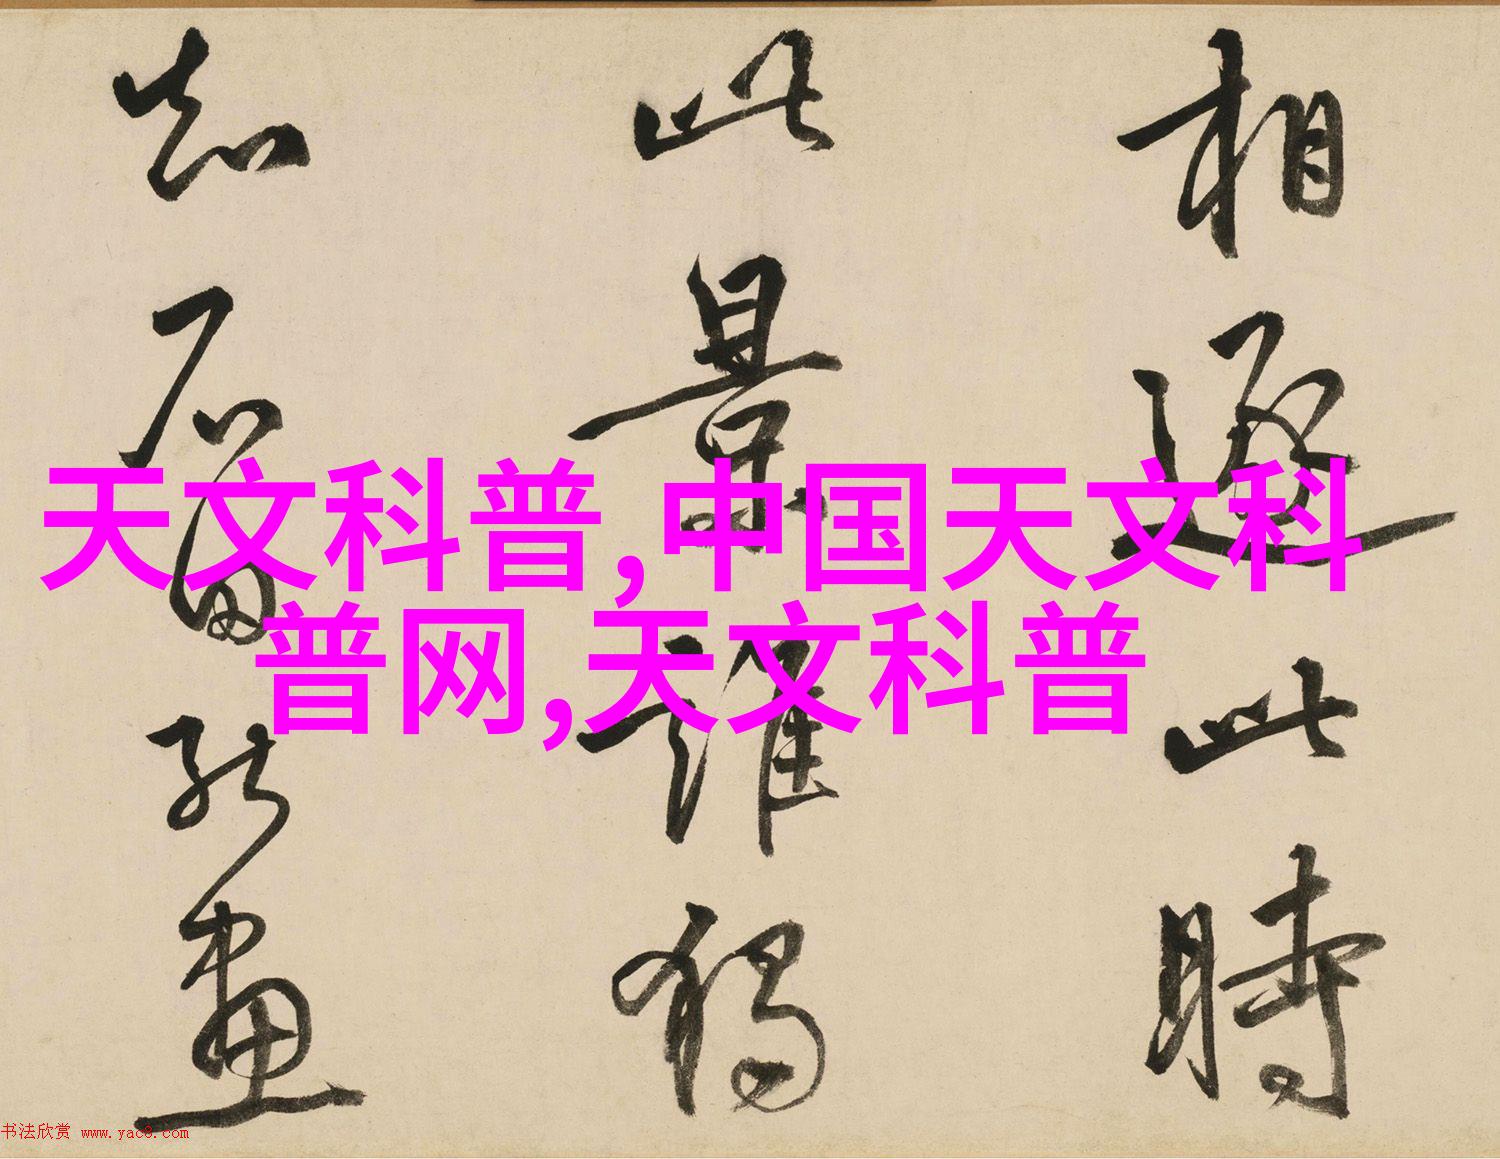 相此時
此景誰獨
知石田能畫
天文科普,中国天文科
普网,天文科普
书法欣赏 www.yac8.com